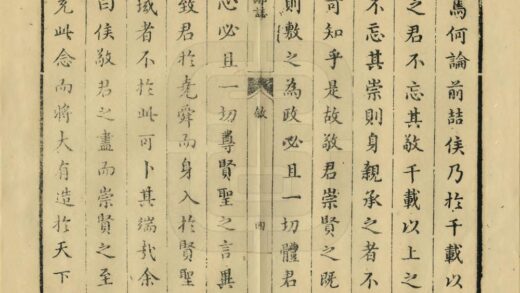 焉何論前喆侯乃於千載以
之君不忘其敬千載以上之
不忘其崇則身親承之者不
可知乎是故敬君崇賢之既
則敷之為政必且一切體君
誌 敘 四
心必且一切尊賢聖之言異
致君於堯舜而身入於賢聖
域者不於此可卜其端哉余
曰侯敬君之盡而崇賢之至
充此念而將大有造於天下